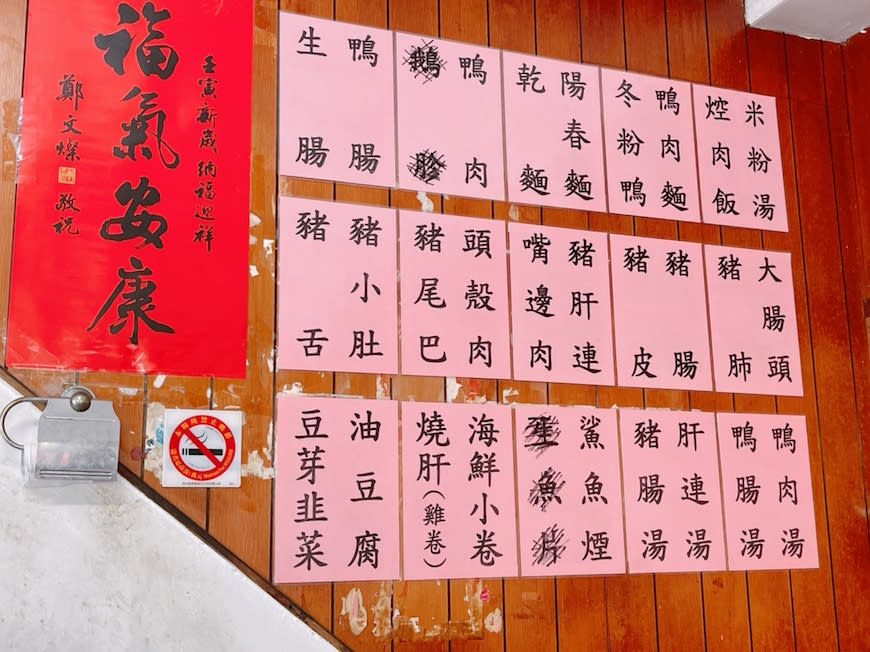 米粉湯
焢肉飯
鴨肉麵
冬粉鴨
陽春麵
乾麵
鴨肉
鵝胗
鴨腸
生腸
大腸頭
豬肺
豬腸
豬皮
豬肝連
嘴邊肉
頭殼肉
豬尾巴
豬小肚
豬舌
鴨肉湯
鴨腸湯
肝連湯
豬腸湯
鯊魚煙
生魚片
海鮮小卷
燒肝(雞卷)
油豆腐
豆芽韭菜
壬寅新歲 納福迎祥
福氣安康
鄭文燦 敬祝
本場所禁止吸菸